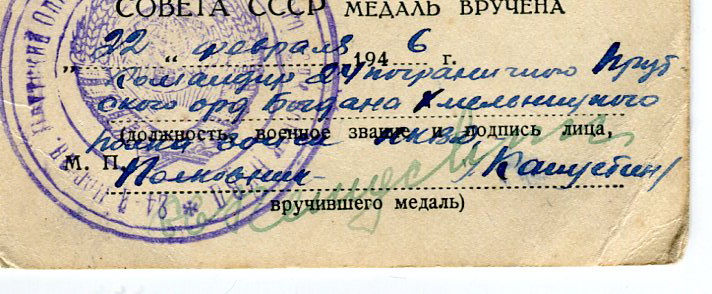 СОВЕТА СССР МЕДАЛЬ ВРУЧЕНА
„ 22 “ февраля 1946 г.
Командир 24 пограничного Прут
ского орд Богдана Хмельницкого
полка войск НКВД-
(должность, военное звание и подпись лица,
М. П. Полковник- /Капустин/
вручившего медаль)